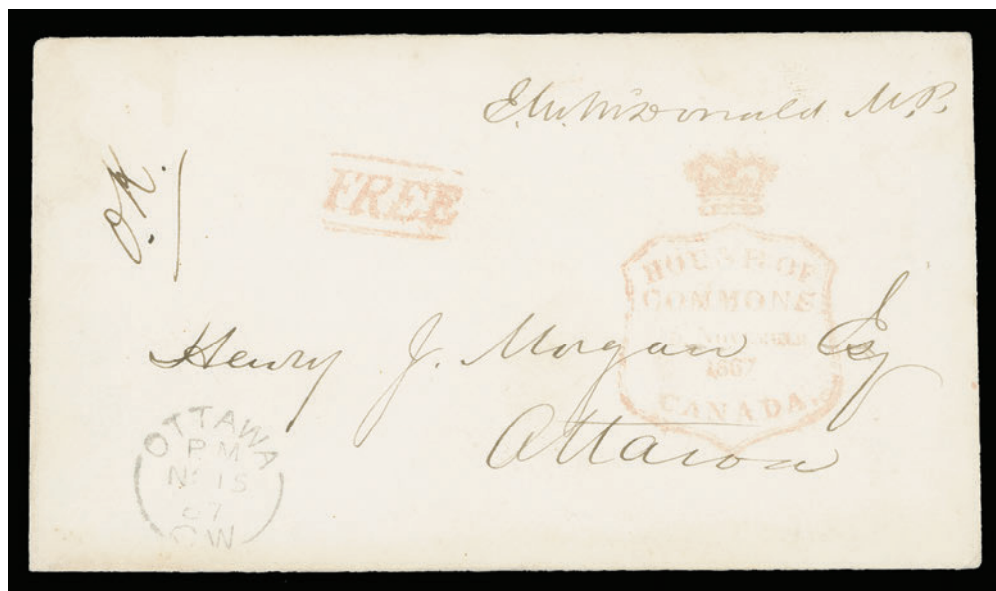 E. M. McDonald M.P.
O.K.
FREE
HOUSE OF
COMMONS
NOVEMBER
1867
CANADA.
Henry J. Morgan Esq
Ottawa
OTTAWA
P.M
No 15
67
C.W